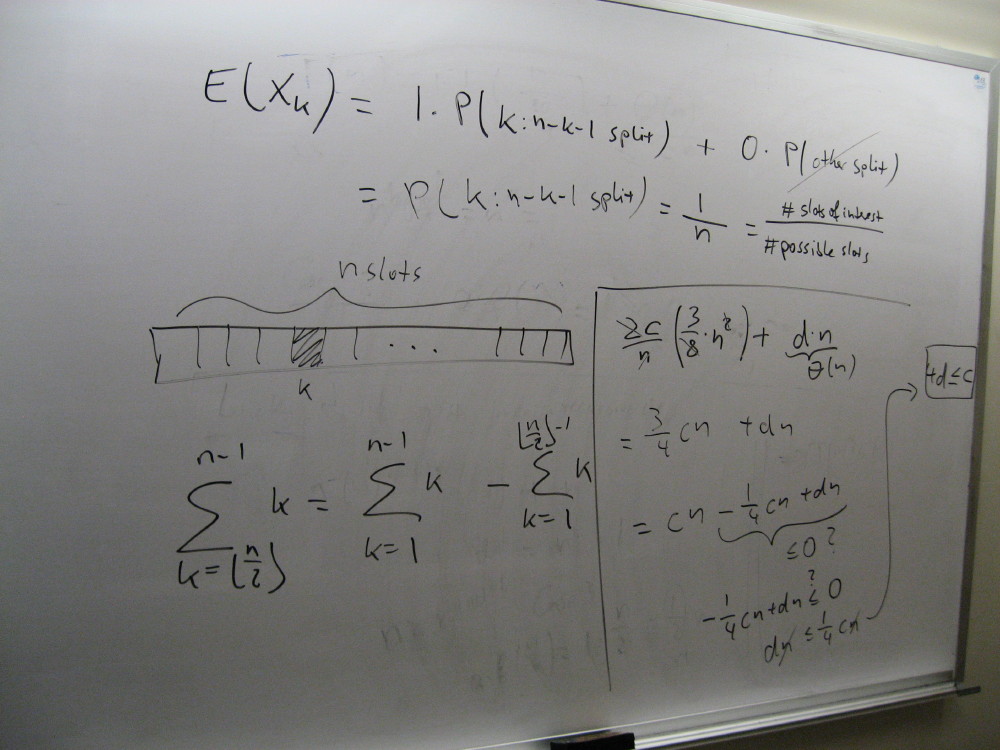 E(X_k) = 1·P(k:n-k-1 split) + 0·P(other split)
= P(k:n-k-1 split) = 1/n = # slots of interest / # possible slots
n slots
...
k
∑_{k=⌊n/2⌋}^{n-1} k = ∑_{k=1}^{n-1} k - ∑_{k=1}^{⌊n/2⌋-1} k
2c/n (3/8·n²) + d·n
Θ(n)
= 3/4 cn + dn
= cn - 1/4 cn + dn
≤0?
-1/4 cn + dn ≤? 0
dn ≤ 1/4 cn
4d≤c